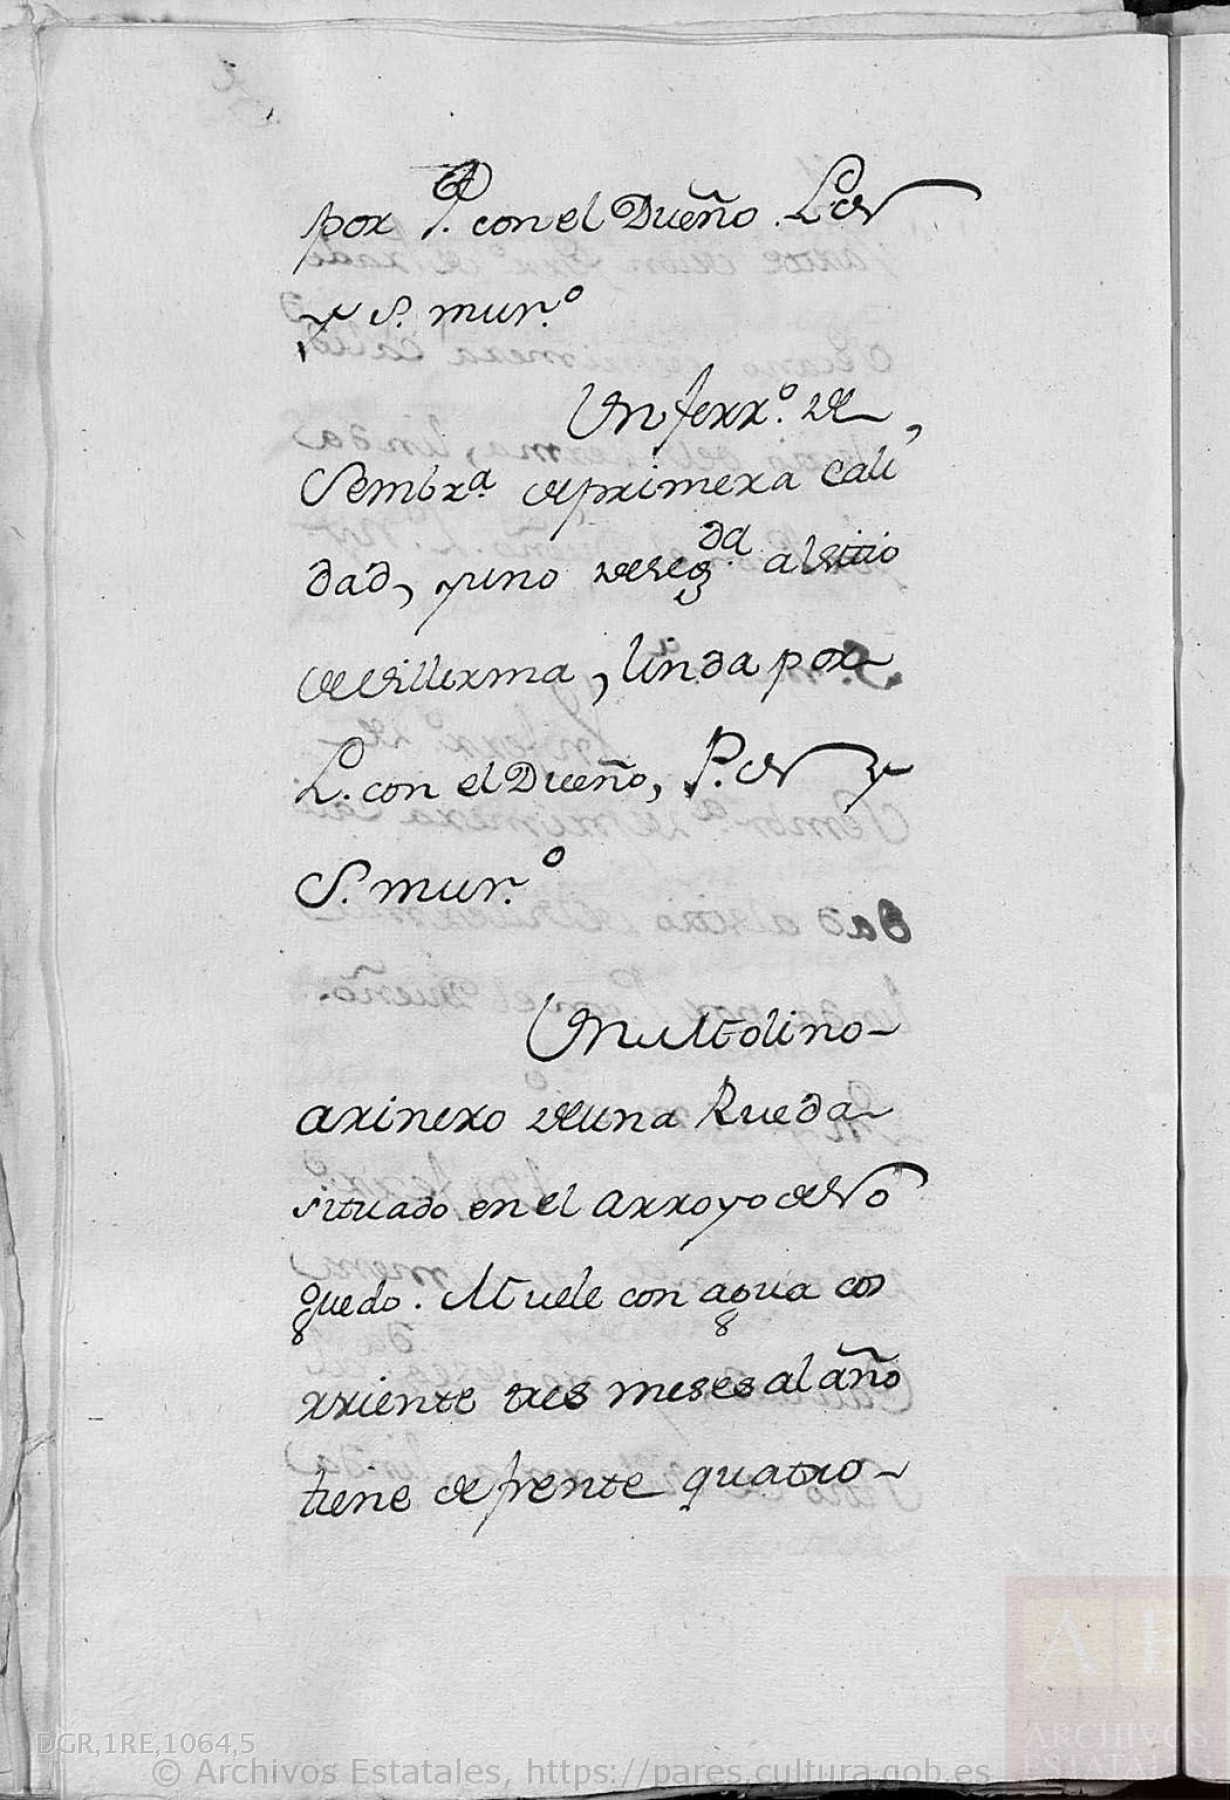 por P. con el Dueño. L. N
y S. mur.º
Un ferr.º de
Sembr.ª de primera Cali
dad, y uno de seg.da al sitio
de Villerma, linda por
L. con el Dueño, P. N y
S. mur.º
Un Molino
arinero de una Rueda
situado en el arroyo de No
guedo. Muele con agua co
rriente tres meses al año
tiene de frente quatro
DGR,1RE,1064,5
© Archivos Estatales, https://pares.cultura.gob.es
AE
ARCHIVOS
ESTATALES